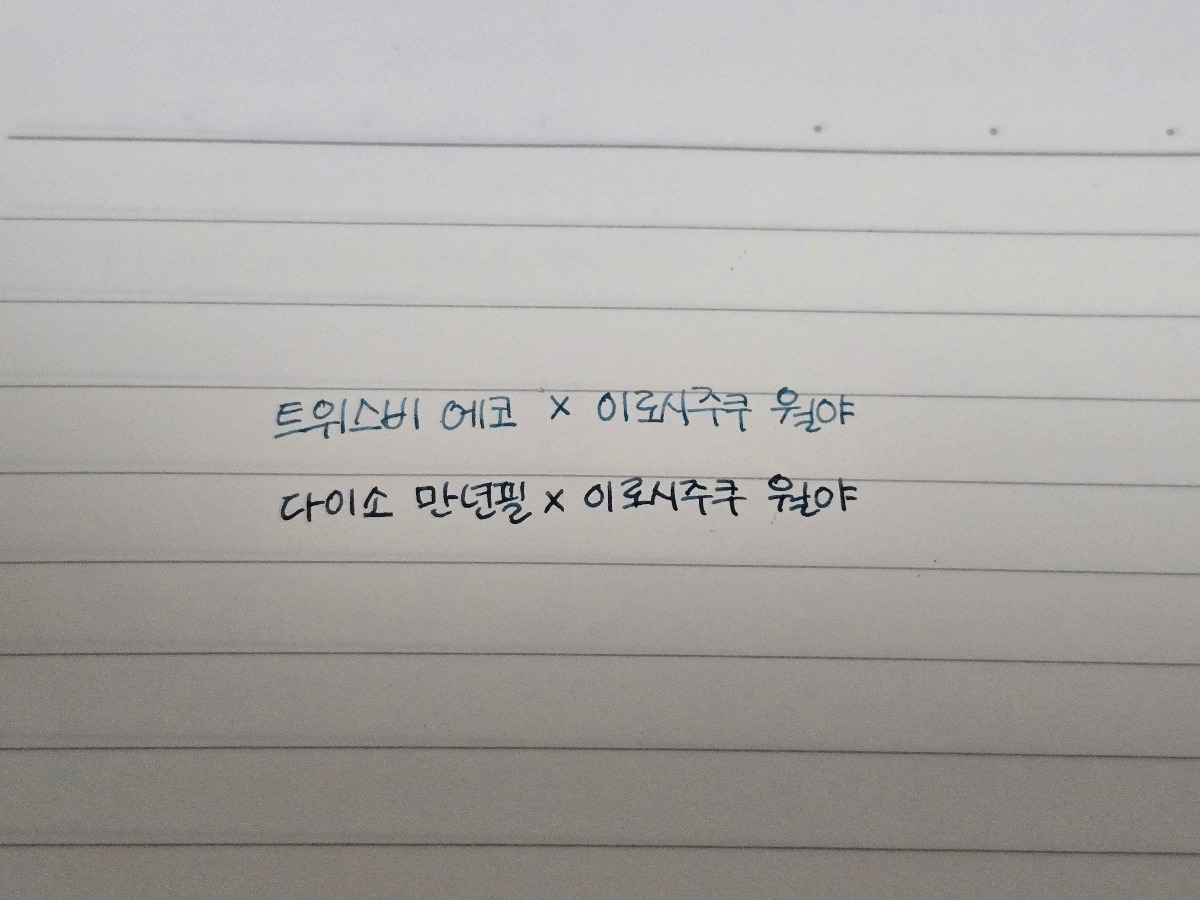 트위스비 에코 x 이로시주쿠 월야
다이소 만년필 x 이로시주쿠 월야